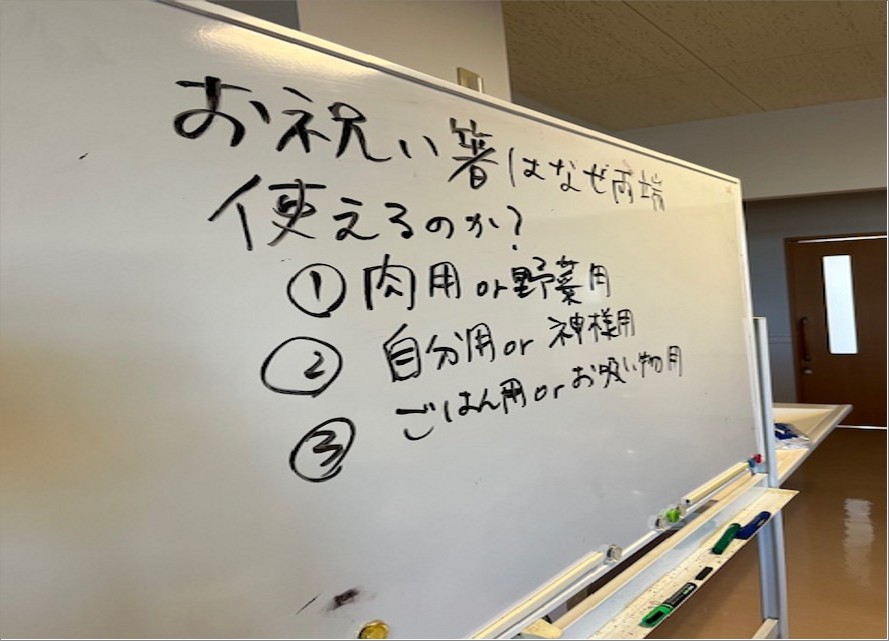 お祝い箸はなぜ両端
使えるのか?
① 肉用or野菜用
② 自分用or神様用
③ ごはん用orお吸い物用